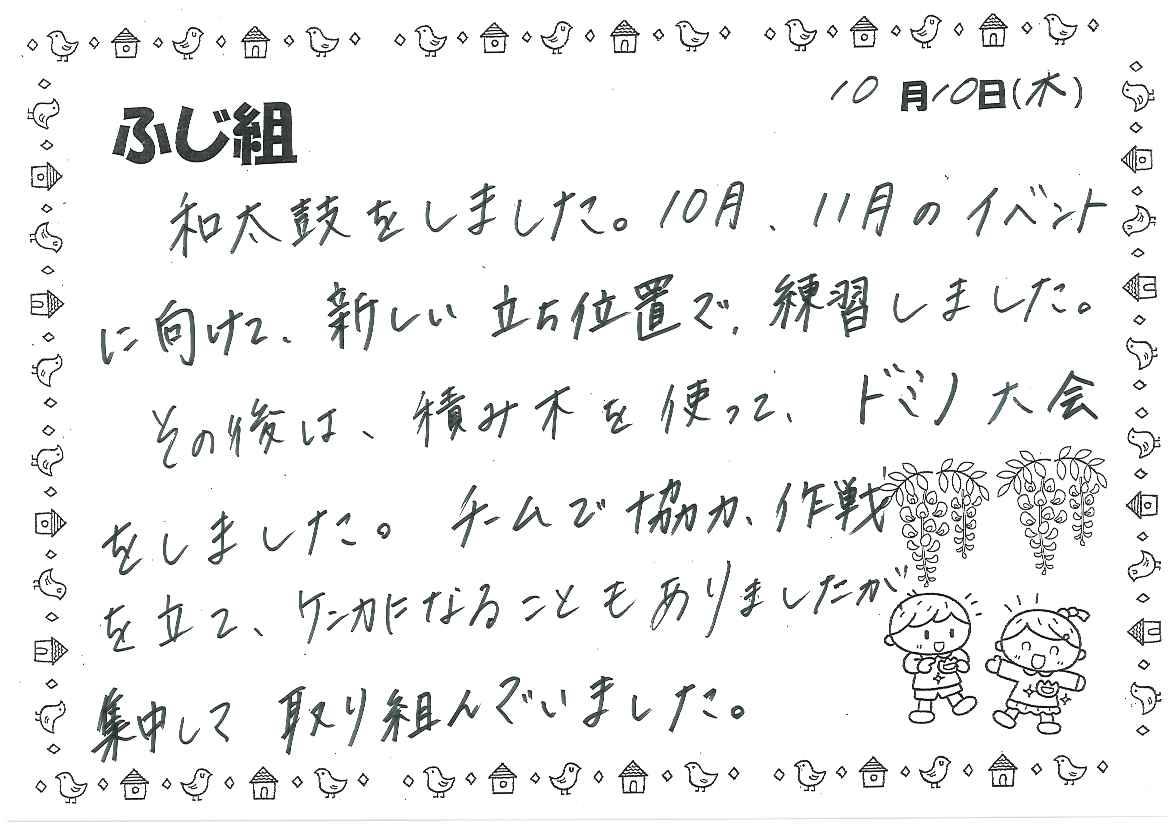 10月10日(木)
ふじ組
和太鼓をしました。10月、11月のイベント
に向けて、新しい立ち位置で、練習しました。
その後は、積み木を使って、ドミノ大会
をしました。チームで協力、作戦
を立て、ケンカになることもありましたが
集中して取り組んでいました。